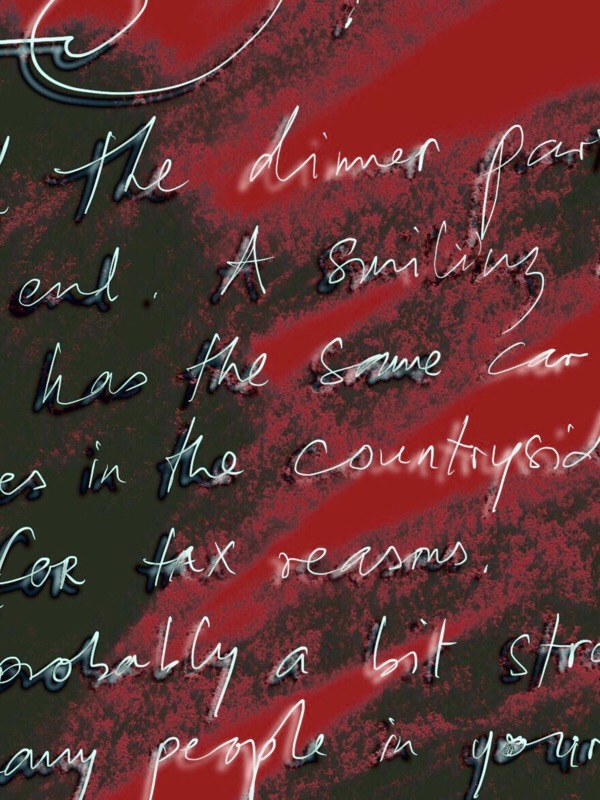 the dinner par
end. A smiling
has the same car
es in the countrysid
for tax reasons.
probably a bit stra
any people in your